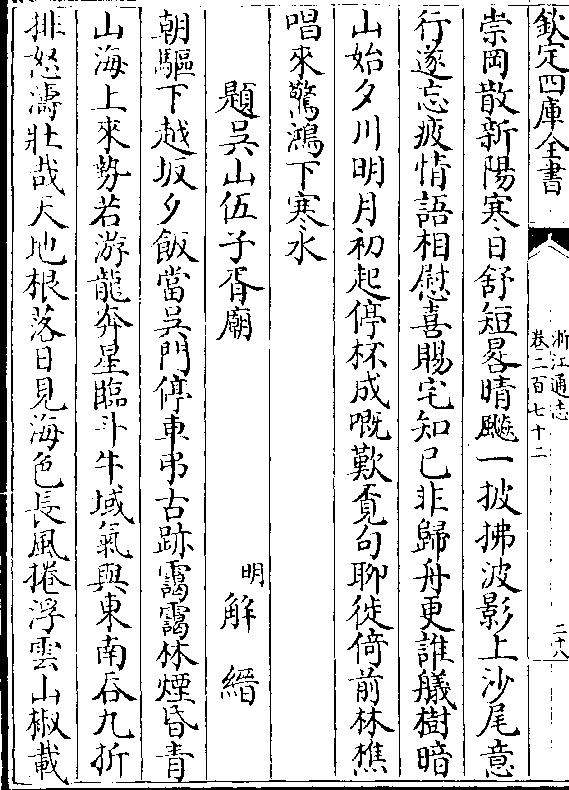 欽定四庫全書
浙江通志
卷二百七十二
二十八
崇岡散新陽寒日舒短晷晴颷一披拂波影上沙尾意
行遂忘疲情語相慰喜賜宅知已非歸舟更誰艤樹暗
山始夕川明月初起停杯成嘅歎覓句聊徙倚前林樵
唱來驚鴻下寒水
題吳山伍子胥廟
明
解縉
朝驅下越坂夕飯當吳門停車弔古跡靄靄林煙昏青
山海上來勢若游龍奔星臨斗牛域氣與東南吞九折
排怒濤壯哉天地根落日見海色長風捲浮雲山椒載